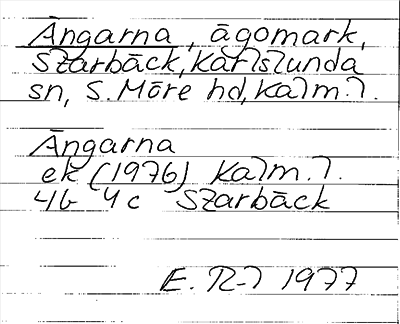 Ängarna, ägomark,
Skarbäck, Karlslunda
sn, S. Möre hd, Kalm. l.
Ängarna
ek (1976) Kalm. l.
4b 4c Skarbäck
E. R-l 1977